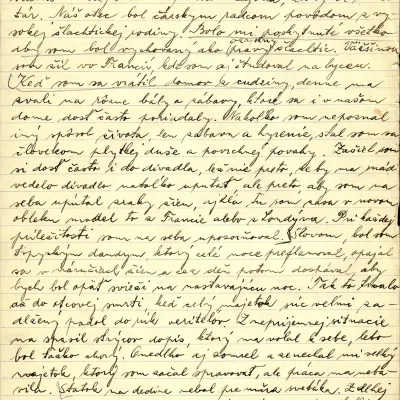 šár. Náš otec bol čárskym radcom pôvodom z vy-
sokej šlachtickej rodiny. Bolo mi poskytnuté všetko
aby som bol vychovaný ako pravý šlachtic. Väčšinou
som žil vo Francii, kde som aj študoval na lyceu.
Keď som sa vrátil domov z cudziny, denne ma
zvali na rôzne bály a zábavy, ktoré sa i v našom
dome dosť často poriadaly. Nakolko som nepoznal
iný spôsob života, len zábavu a hýrenie, stal som sa
človekom plytkej duše a povrchnej povahy. Zašiel som
si dosť často i do divadla, lež nie preto, že by ma snáď
vedelo divadlo natolko upútať, ale preto, aby som na
seba upútal zraky žien, v novom
obleku model to z Francie alebo z Londýna. Pri každej
príležitosti som na seba upozorňoval. Slovom, bol som
typickým dandym, ktorý celé noce preflámoval, opájal
sa v náručiach žien a cez deň potom dospával, aby
bych bol opäť svieži na nastávajúcu noc. Tak to trvalo
až do otcovej smrti, keď celý majetok síc velmi za-
dlžený padol do rúk veriteľov. Z nepríjemnej situácie
ma spasil strýcov dopis, ktorý ma volal k sebe, lebo
bol ťažko chorý. Onedlho aj zomrel a zanechal mi velký
majetok, ktorý som začal spravovať, ale práca ma neba-
vila. Statok na dedine nebol pre mňa sveták. Z dlhej